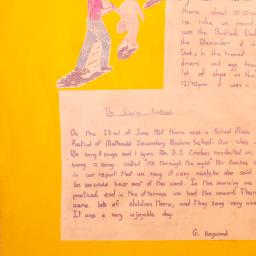 there about 10.30am
He take us round
was the Pontiack Dock
the Alexander it
Dock, in the transit
driers and egg
lot of ships in the
12/30pm it was
The Singing Festival
On the 22nd of June 1965 there was a School Music
Festival at Maltmead Secondary Modern School. Our class
We sang 8 songs and 1 hymn. Mr D.T. Combes conducted us
song a song called "All through the night" Mr Combes
in our report that we sang it very nicely, he also said
he could hear most of the words. In the morning we
practised, and in the afternoon we had the concert. There
were lots of children there, and they sang very
It was a very enjoyable day.
G.